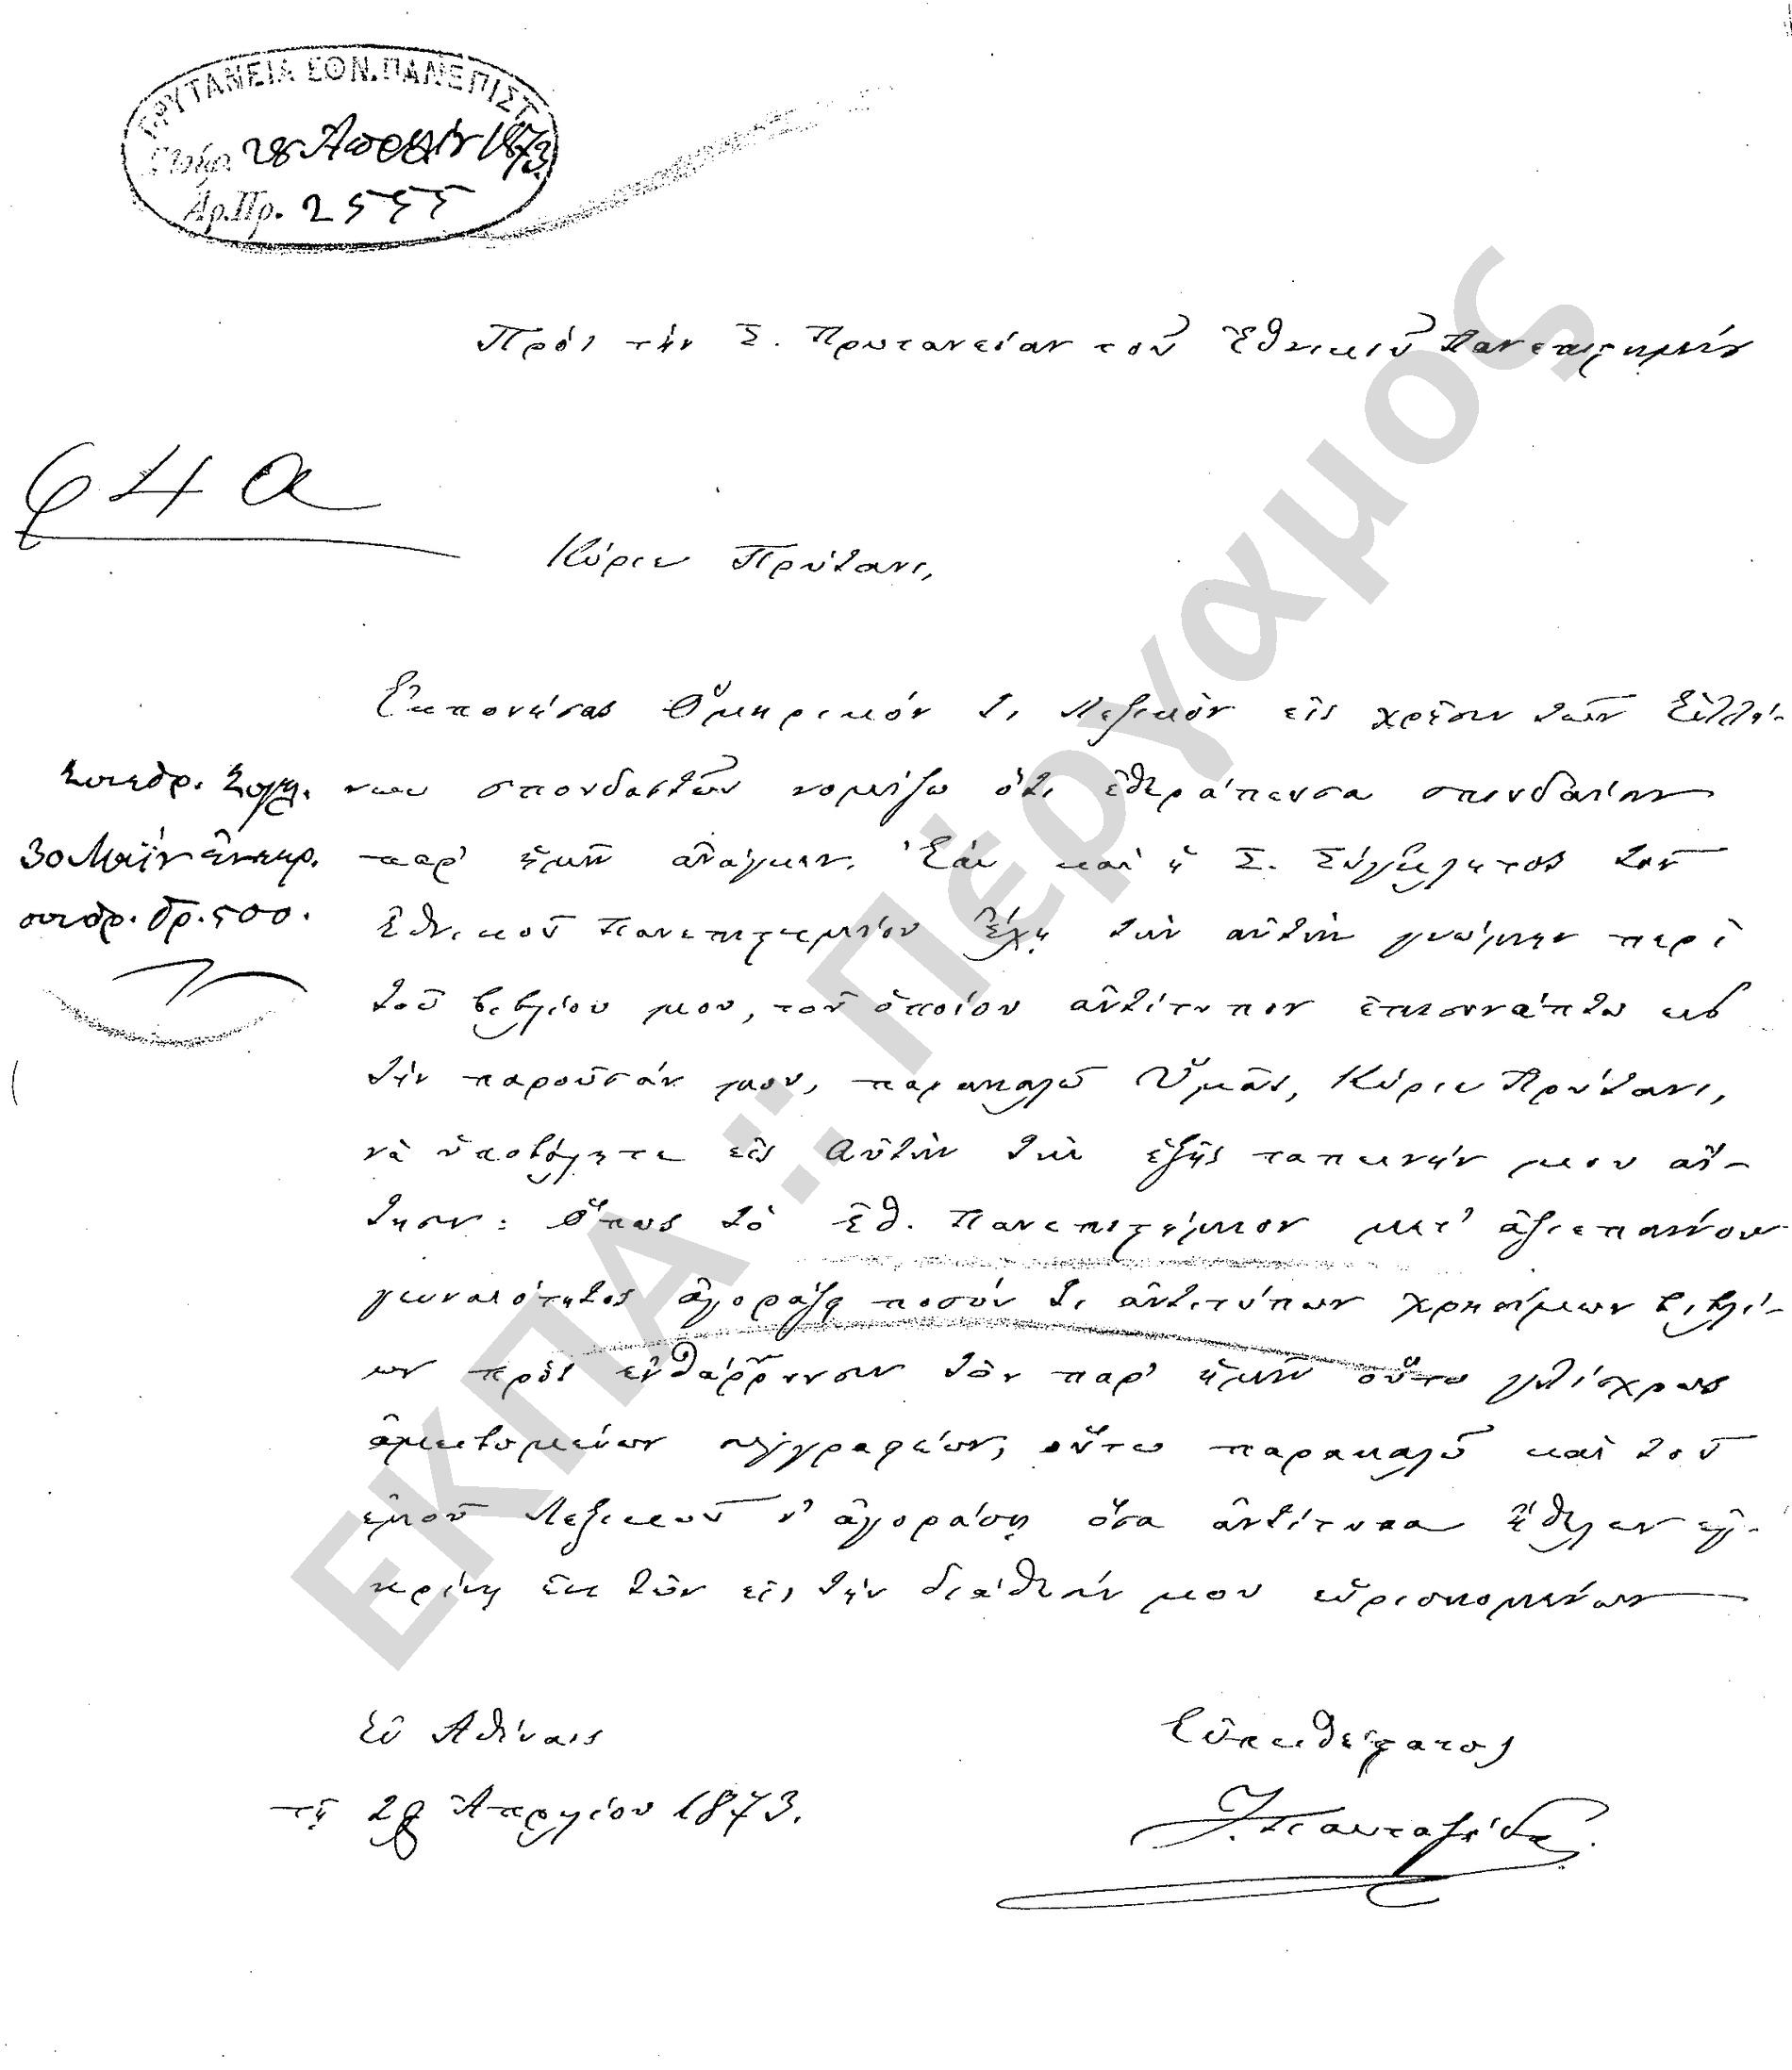 ΠΡΥΤΑΝΕΙΑ ΕΘΝ. ΠΑΝΕΠΙΣΤ
28 Ἀπριλίου 1873
Ἀρ. Πρ. 2555
Πρὸς τὴν Σ. Πρυτανείαν τοῦ Ἐθνικοῦ Πανεπιστημίου
φ 4 α
Κύριε Πρύτανι,
Ἐκπονήσας Ὁμηρικόν τι Λεξικὸν εἰς χρῆσιν τῶν Ἑλλή-
νων σπουδαστῶν νομίζω ὅτι ἐθεράπευσα σπουδαίαν
παρ' ἡμῖν ἀνάγκην. Ἐὰν καὶ ἡ Σ. Σύγκλητος τοῦ
Ἐθνικοῦ Πανεπιστημίου ἔχῃ τὴν αὐτὴν γνώμην περὶ
τοῦ βιβλίου μου, τοῦ ὁποίου ἀντίτυπον ἐπισυνάπτω εἰς
τὴν παροῦσάν μου, παρακαλῶ Ὑμᾶς, Κύριε Πρύτανι,
νὰ ὑποβάλητε εἰς Αὐτὴν τὴν ἑξῆς ταπεινήν μου αἴ-
τησιν: Ὅπως τὸ Ἐθ. Πανεπιστήμιον μετ' ἀξιεπαίνου
γενναιότητος ἀγοράζῃ ποσόν τι ἀντιτύπων χρησίμων βιβλί-
ων πρὸς ἐνθάῤῥυνσιν τῶν παρ' ἡμῖν οὕτω γλίσχρως
ἀμειβομένων συγγραφέων, οὕτω παρακαλῶ καὶ τοῦ
ἐμοῦ Λεξικοῦ ν' ἀγοράσῃ ὅσα ἀντίτυπα ἤθελεν ἐγ-
κρίνῃ ἐκ τῶν εἰς τὴν διάθεσίν μου εὑρισκομένων
Συνεδρ. Συγκλ.
30 Μαΐου ἐνεκρ.
συνδρ. δρ. 500.
Ἐν Ἀθήναις
τῇ 28 Ἀπριλίου 1873.
Εὐπειθέστατος
Ἰ. Πανταζίδης
ΕΚΠΑ:: Πέργαμος